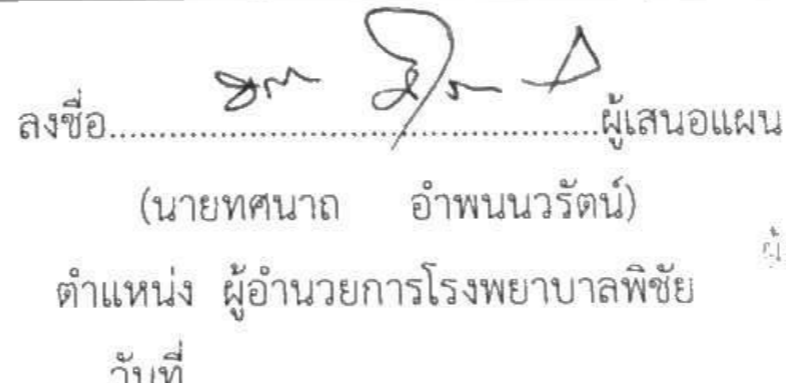 ลงชื่อ................................................ผู้เสนอแผน
(นายทศนาถ อำพนนวรัตน์)
ตำแหน่ง ผู้อำนวยการโรงพยาบาลพิชัย
วันที่